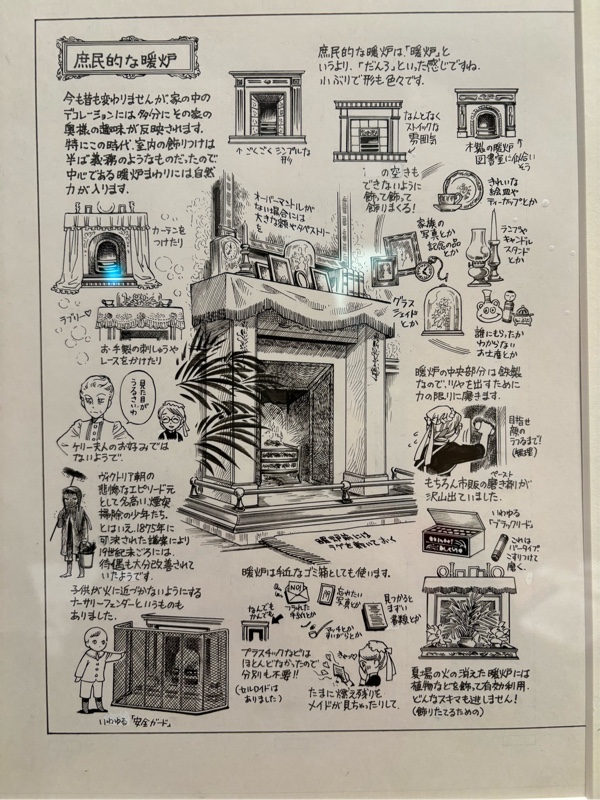 庶民的な暖炉
今も昔も変わりませんが、家の中の
デコレーションには多分にその家の
奥様の趣味が反映されます。
特にこの時代、室内の飾りつけは
半ば義務のようなものだったので
中心である暖炉まわりには自然
力が入ります。
庶民的な暖炉は、「暖炉」と
いうより、「だんろ」といった感じですね。
小ぶりで形も色々です。
↑ごくごくシンプルな
形
なんとなく
ストイックな
雰囲気
木製の暖炉↑
図書室に似合い
そう
の空きも
できないように
飾って飾って
飾りまくる!
きれいな
絵皿や
ティーカップとか
オーバーマントルが
ない場合には
大きな鏡やタペストリー
を
家族の
写真とか
記念の品
とか
ランプや
キャンドル
スタンド
とか
カーテンを
つけたり
グラス
シェイド
とか
誰にもらったか
わからない
お土産とか
ラブリー♡
お手製の刺しゅうや
レースをかけたり
見た目が
うるさいわ
ケリー夫人のお好みでは
ないようで。
暖炉の中央部分は鉄製
なので、ツヤを出すために
力の限りに磨きます。
目指せ
顔の
うつるまで!
(無理)
ペースト
もちろん市販の磨き剤が
沢山出ていました。
ヴィクトリア朝の
悲惨なエピソード元
として名高い、煙突
掃除の少年たち。
とはいえ、1875年に
可決された議案により
19世紀末ごろには、
待遇も大分改善されて
いたようです。
いわゆる
「ブラックリード」
これは
バータイプ
こすりつけて
磨く。
暖炉前には
ラグを敷いておく
子供が火に近づかないようにする
ナーサリーフェンダーというものも
ありました。
いわゆる「安全ガード」
暖炉は手近なゴミ箱としても使います。
なんでも
かんでも
NO!
フラれた
手紙とか
忘れたい
写真とか
見つかると
まずい
書類とか
マッチとか
すいがらとか
プラスチックなどは
ほとんどなかったので
分別も不要!!
(セルロイドは
ありました)
きゃっ
たまに燃え残りを
メイドが見ちゃったりして。
夏場の火の消えた暖炉には
植物などを飾って有効利用。
どんなスキマも逃しません!
(飾りたてるための)